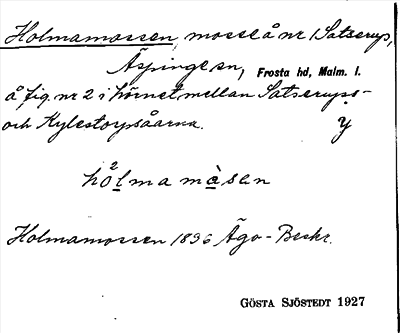 Holmamossen, mosse å nr 1 Satserup,
Äspinge sn, Frosta hd, Malm. l.
å fig. nr 2 i hörnet mellan Satserups-
och Kylestorpsåarna. y
hó²lmamàsen
Holmamossen 1836 Ägo-Beskr.
GÖSTA SJÖSTEDT 1927